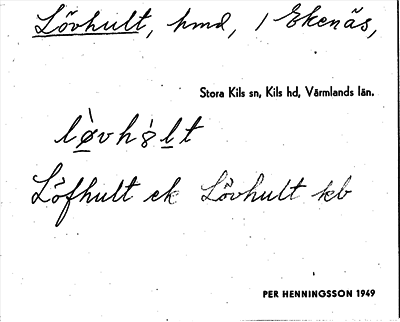 Lövhult, hmd, / Ekenäs,
Stora Kils sn, Kils hd, Värmlands län.
lø̀vhȣ̀lt
Löfhult ek Lövhult kb
PER HENNINGSSON 1949